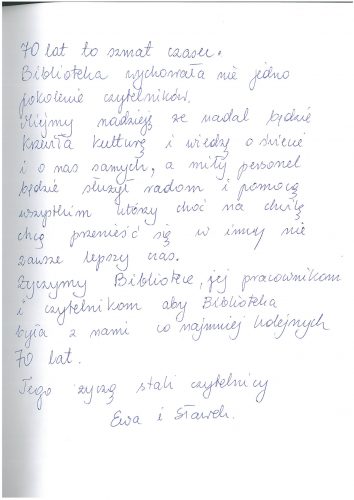 70 lat to szmat czasu.
Biblioteka wychowała nie jedno
pokolenie czytelników.
Miejmy nadzieję że nadal będzie
krzewiła kulturę i wiedzę o świecie
i o nas samych, a miły personel
będzie służył radom i pomocą
wszystkim którzy choć na chwilę
chcą przenieść się w inny nie
zawsze lepszy czas.
Życzymy Bibliotece, jej pracownikom
i czytelnikom aby Biblioteka
była z nami co najmniej kolejnych
70 lat.
Tego życzą stali czytelnicy
Ewa i Sławek.